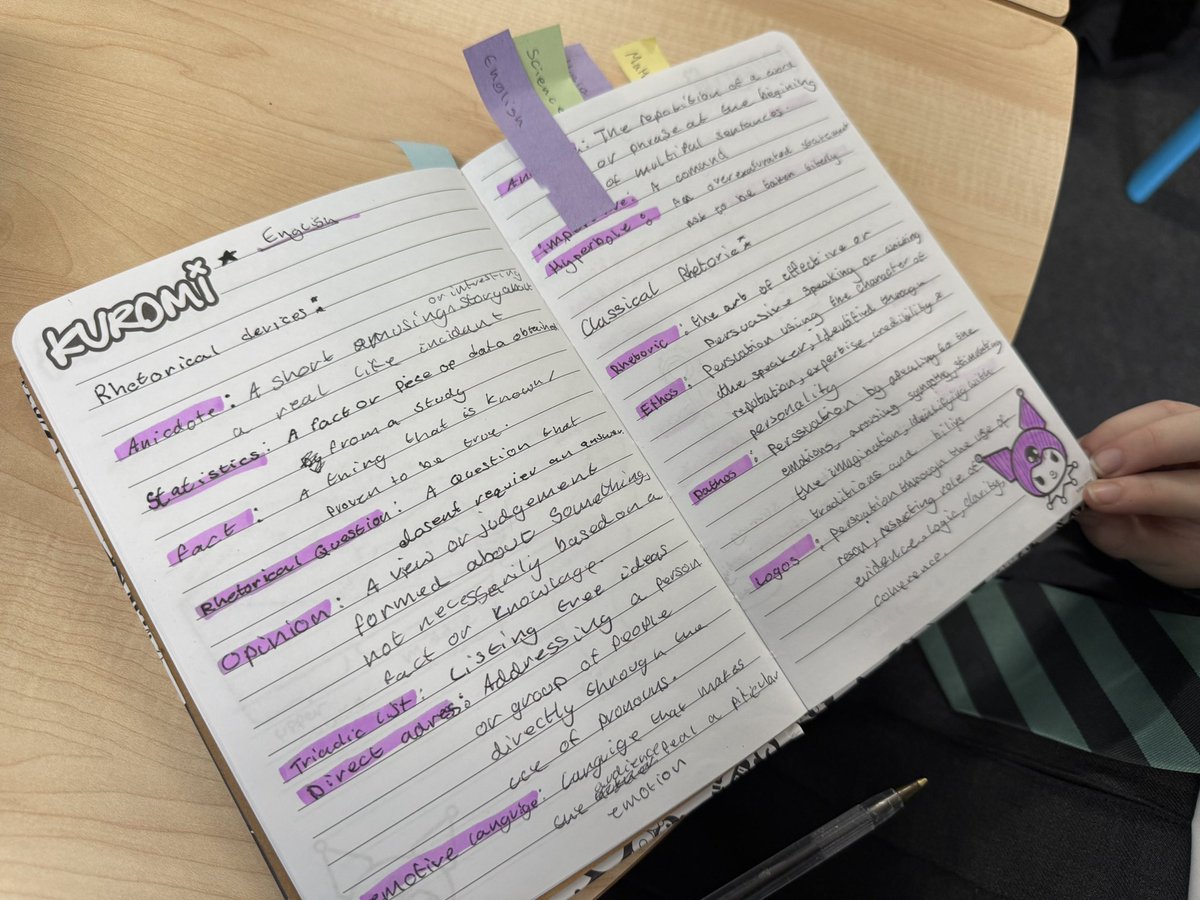 English
Science
KUROMI
English
Rhetorical devices:
or interesting
Anicdote: A short amusing story about
a real life incidant
Statistics: A fact or Piece of data obtained
from a study
Fact: A thing that is known/
proven to be true.
Rhetorical Question: A Question that
dosent requier an answer
Opinion: A view or judgement
formed about something,
not necesserily based on a
fact or knowlage.
Triadic list: Listing tree ideas
Direct adress: Addressing a person
or group of people
directly through the
use of pronouns.
emotive languige: languige that makes
the audience feal a piticular
emotion
An : The repotition of a word
or phrase at the begining
of multipul sentances.
imp ive: A comand
Hyperbole: An overexaturated statement
not to be taken literly
Classical Rhetoric
Rhetoric: the art of effective or
Persuasive speaking or writing
Ethos: Perscation using the character of
the speaker, identified through
reputation, expertise, credibility &
personality
Pathos: Perscation by apealing to the
emotions, arousing sympathy, stimulating
the imagination, identifying with
traditions and
Logos: perscation through the use of
reson, respecting role of
evidence, logic, clarity,
coherence.